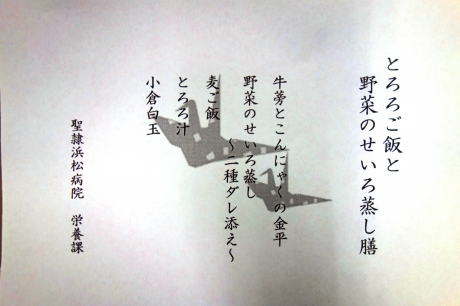 とろろご飯と
野菜のせいろ蒸し膳
牛蒡とこんにゃくの金平
野菜のせいろ蒸し
～二種ダレ添え～
麦ご飯
とろろ汁
小倉白玉
聖隷浜松病院 栄養課